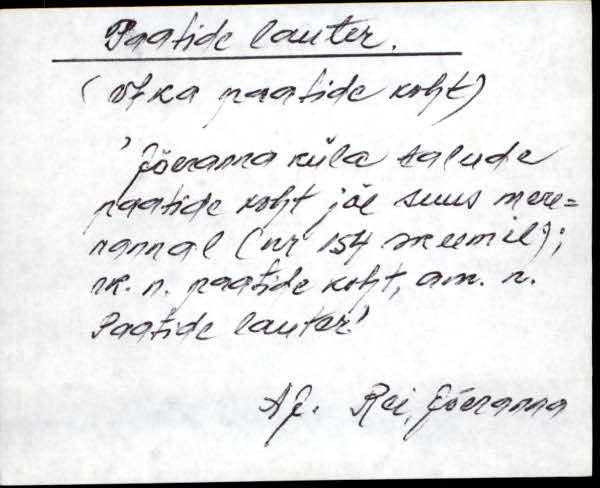 Paatide lauter.
(vt ka paatide koht)
'Jõeranna küla talude
paatide koht jõe suus mere=
rannal (nr 154 skeemil);
rk. n. paatide koht, am. n.
Paatide lauter'
AJ. Rei, Jõeranna